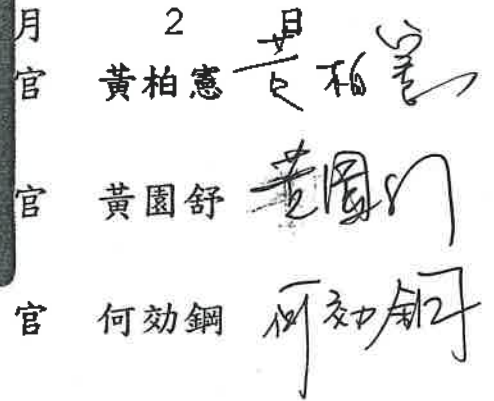 月 2 日
官 黃柏憲 黃柏憲
官 黃園舒 黃園舒
官 何効鋼 何効鋼